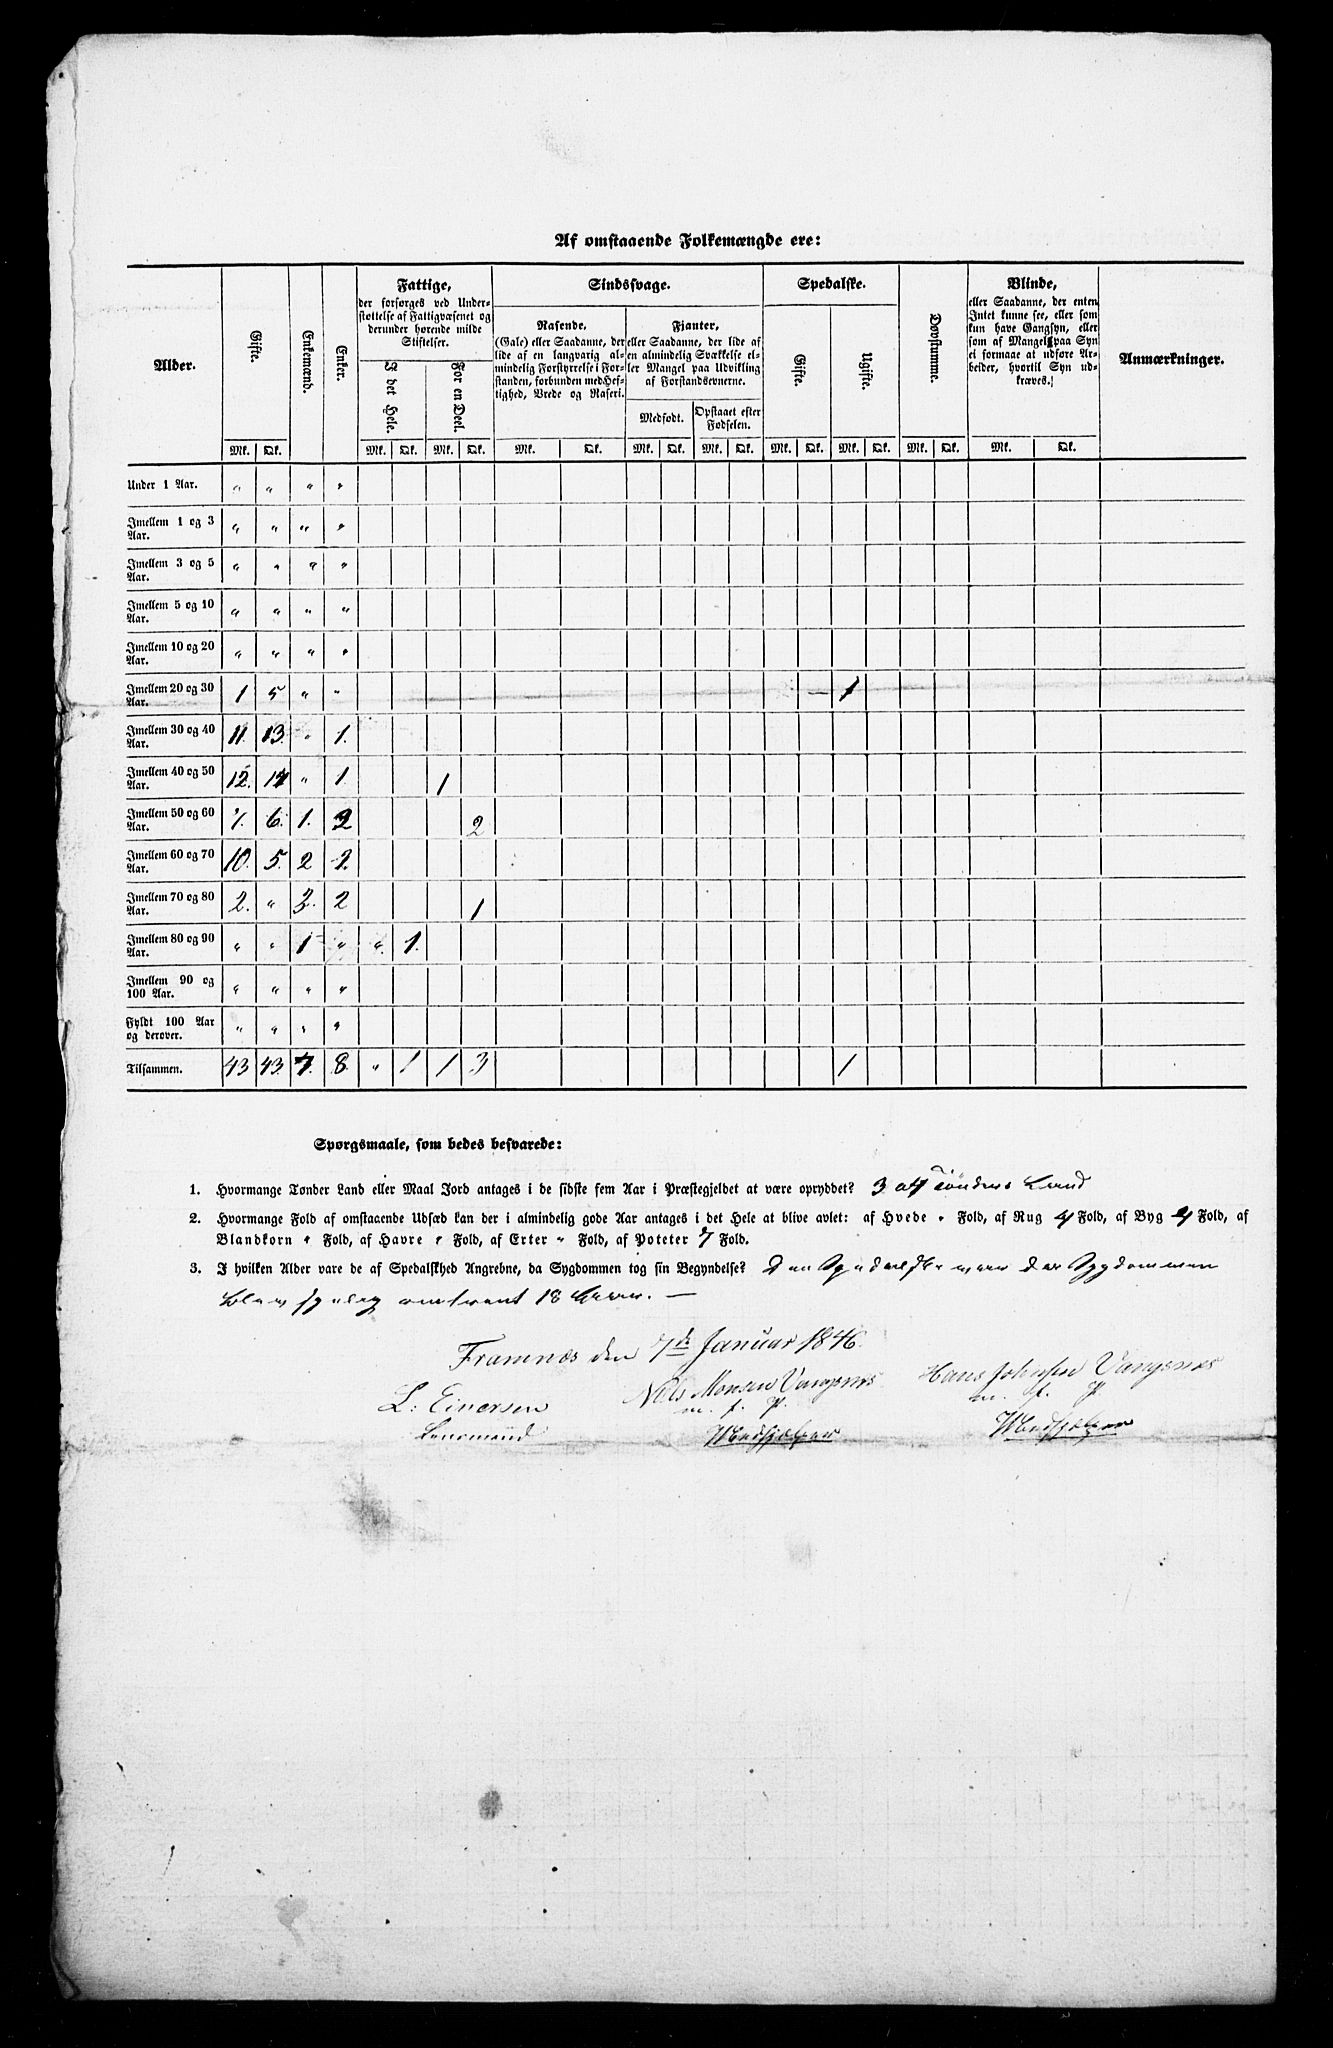 Af omstaaende Folkemængde ere:
Alder.
Gifte.
Enkemænd.
Enker.
Fattige,
der forsørges ved Under-
støttelse af Fattigvæsenet og
derunder hørende milde
Stiftelser.
I det Hele.
For en Deel.
Sindssvage.
Rasende,
(Gale) eller Saadanne, der
lide af en langvarig al-
mindelig Forstyrrelse i For-
standen, forbunden med Hef-
tighed, Vrede og Raseri.
Fjanter,
eller Saadanne, der lide af
en almindelig Svækkelse el-
ler Mangel paa Udvikling
af Forstandsevnerne.
Medfødt.
Opstaaet efter
Fødselen.
Spedalske.
Gifte.
Ugifte.
Døvstumme.
Blinde,
eller Saadanne, der enten
Intet kunne see, eller som
kun have Gangsyn, eller
som af Mangel paa Syn
ei formaae at udføre Ar-
beider, hvortil Syn ud-
kræves.)
Anmærkninger.
Mk. Qk. Mk. Qk. Mk. Qk. Mk. Qk. Mk. Qk. Mk. Qk. Mk. Qk. Mk. Qk. Mk. Qk. Mk. Qk.
Under 1 Aar. " " " "
Imellem 1 og 3
Aar. " " " "
Imellem 3 og 5
Aar. " " " "
Imellem 5 og 10
Aar. " " " "
Imellem 10 og 20
Aar. " " " "
Imellem 20 og 30
Aar. 1 5 " " 1
Imellem 30 og 40
Aar. 11. 13. " 1.
Imellem 40 og 50
Aar. 12. 14 " 1 1
Imellem 50 og 60
Aar. 7. 6. 1. 2 2
Imellem 60 og 70
Aar. 10. 5. 2 2.
Imellem 70 og 80
Aar. 2. " 3. 2 1
Imellem 80 og 90
Aar. " " 1 " " 1.
Imellem 90 og
100 Aar. " " " "
Fyldt 100 Aar
og derover. " " " "
Tilsammen. 43 43. 7. 8. " 1 1 3 1
Spørgsmaale, som bedes besvarede:
1. Hvormange Tønder Land eller Maal Jord antages i de sidste fem Aar i Præstegjeldet at være opryddet? 3 a 4 Tönders Land
2. Hvormange Fold af omstaaende Udsæd kan der i almindelig gode Aar antages i det Hele at blive avlet: af Hvede " Fold, af Rug 4 Fold, af Byg 4 Fold, af
Blandkorn " Fold, af Havre " Fold, af Erter " Fold, af Poteter 7 Fold.
3. I hvilken Alder vare de af Spedalskhed Angrebne, da Sygdommen tog sin Begyndelse? Den Spedalske var da Sygdommen
blev synlig omtrent 18 Aar. —
Framnæs den 7de Januar 1846.
L. Einersen
Lensmand
Niels Monsen Vangsnes
m. f. P.
Medhjelper
Hans Johnsen Vangsnes
m. f. P.
Medhjelper